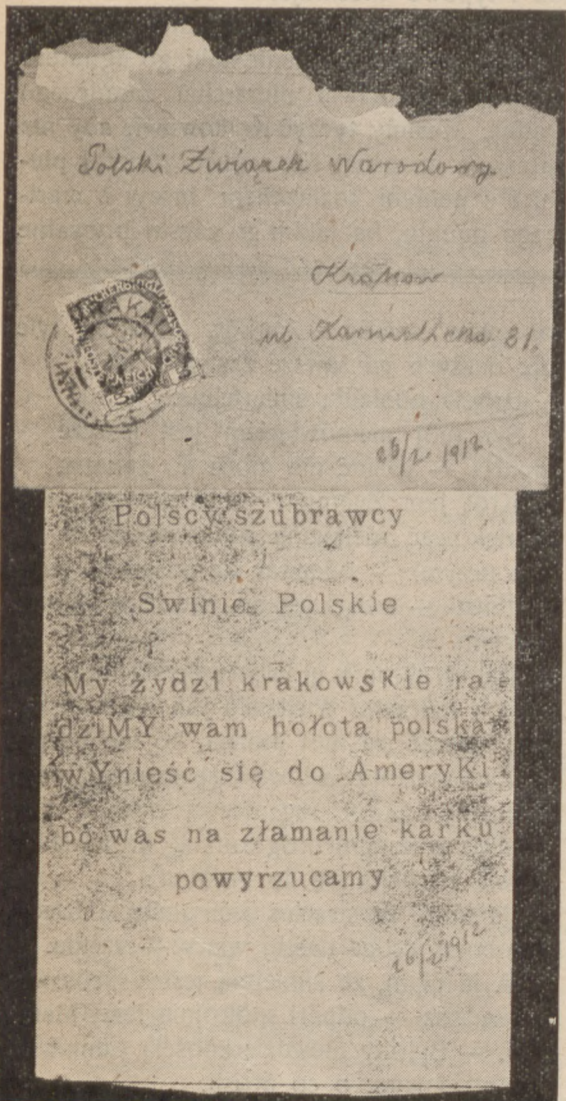 Polski Związek Narodowy.
Krakow
ul Karmelicka 31.
KRAKAU
26/2 1912.
Polscy szubrawcy
i
Swinie Polskie
My żydzi krakowsKie ra-
dziMY wam hołota polska
wYnieść się do AmeryKi
bo was na złamanie karku
powyrzucamy
26/2 1912